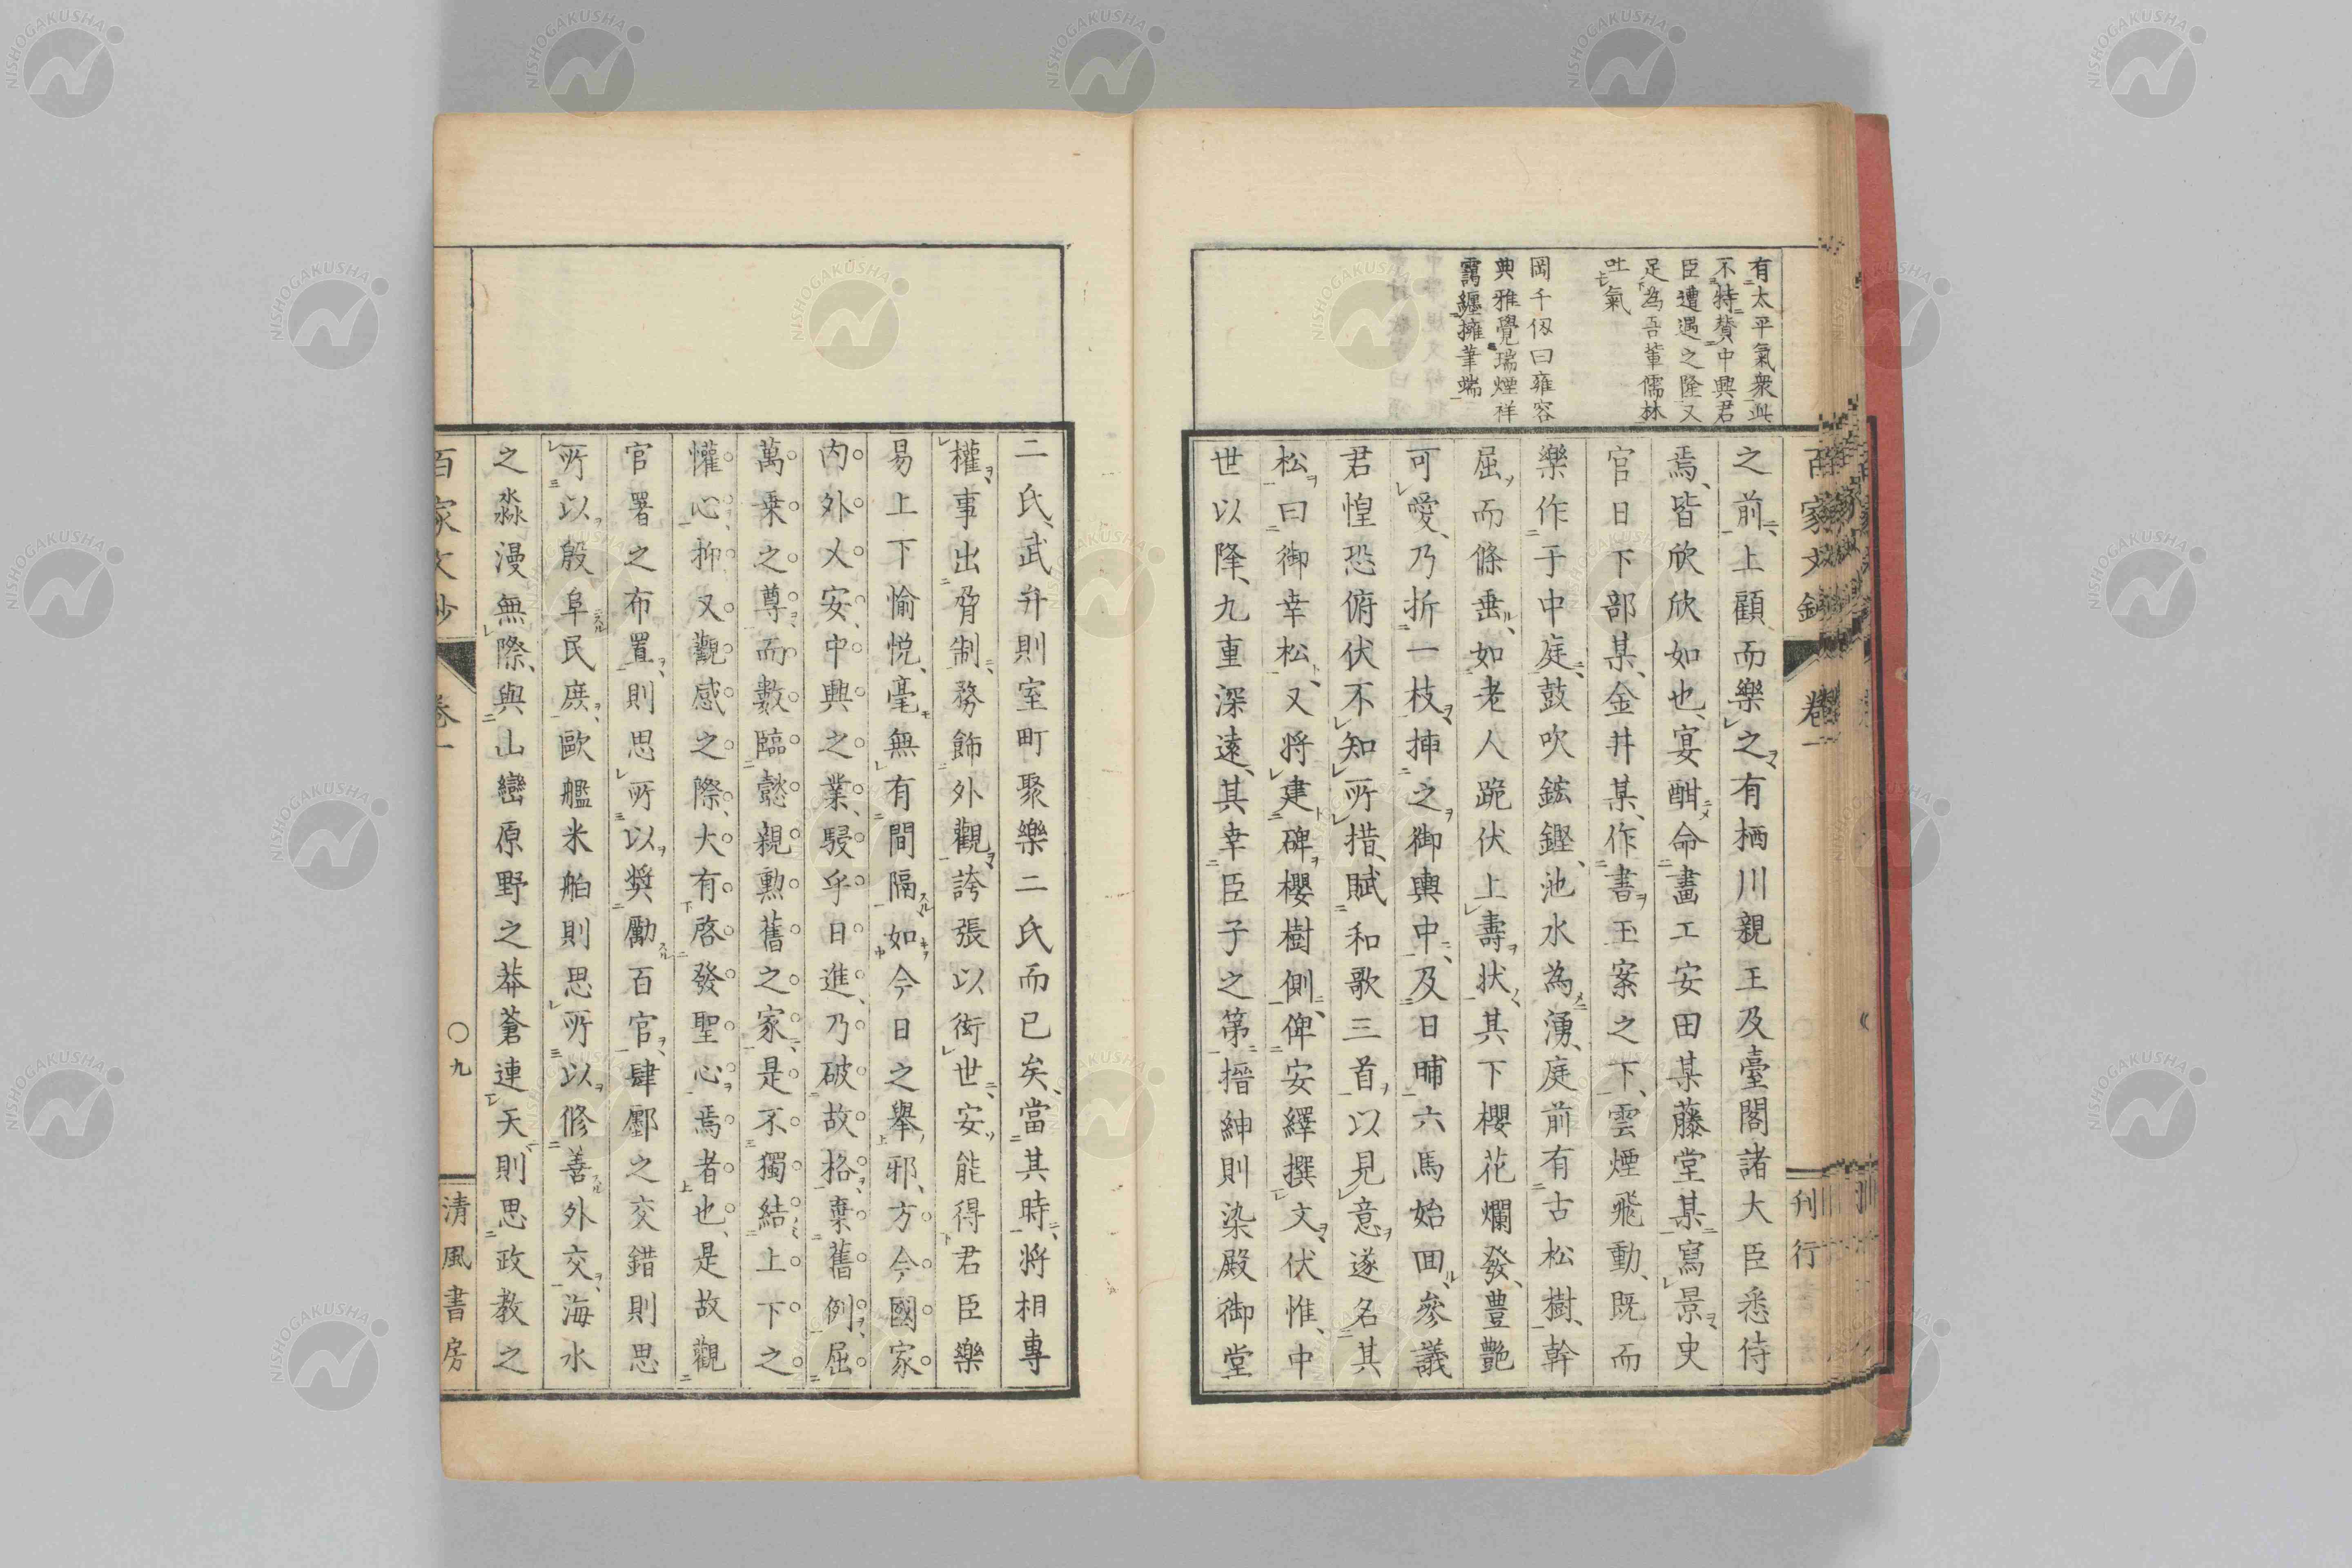 有太平氣象此
不特賛中興君
臣遭遇之隆又
足為吾輩儒林
吐氣
岡千仭曰雍容
典雅覺瑞煙祥
靄纒擁筆端
百家文鈔
卷一
刊行
之前、上顧而樂之、有栖川親王及臺閣諸大臣悉侍
焉、皆欣欣如也、宴酣命畵工安田某藤堂某寫景、史
官日下部某、金井某、作書、玉案之下、雲煙飛動、既而
樂作于中庭、鼓吹鋐鏗、池水為湧、庭前有古松樹、幹
屈而條垂、如老人跪伏上壽状、其下櫻花爛發、豊艷
可愛、乃折一枝、挿之御輿中、及日晡六馬始回、參議
君惶恐俯伏不知所措、賦和歌三首、以見意、遂名其
松曰御幸松、又将建碑櫻樹側、俾安繹撰文、伏惟、中
世以降、九重深遠、其幸臣子之第、搢紳則染殿御堂
二氏、武弁則室町聚樂二氏而已矣、當其時、将相專
權、事出脅制、務飾外觀、誇張以衒世、安能得君臣樂
易上下愉悦、毫無有間隔如今日之舉邪、方今國家
内外乂安、中興之業、駸乎日進、乃破故格、棄舊例、屈
萬乗之尊、而數臨懿親勲舊之家、是不獨結上下之
懽心、抑又觀感之際、大有啓發聖心焉者也、是故觀
官署之布置、則思所以奨勵百官、肆鄽之交錯則思
所以殷阜民庶、歐艦米舶則思所以修善外交、海水
之淼漫無際、與山巒原野之莽蒼連天、則思政教之
百家文鈔
卷一
〇九
清風書房